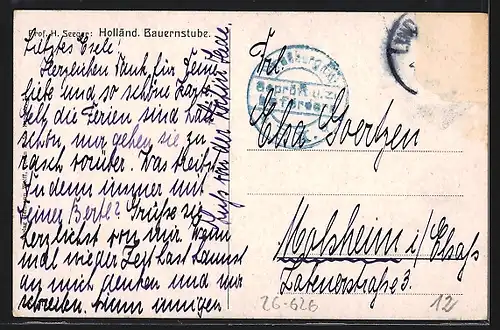 Prof. H. Seeger: Holländ. Bauernstube.
Liebste Besele!
Herzlichen Dank für Deine
liebe und so schöne Karte.
Gelt die Ferien sind halt
schön nur gehen sie zu
rasch vorüber. Was treibst
Du denn immer mit
Deiner Bertl? Grüße sie
herzlichst von mir. Wenn
mal wieder Zeit hast kannst
an mich denken und mir
schreiben. Einen innigen
Kuß von der
Frl.
Elsa Goertzen
Molsheim i/Elsaß
Zabernerstraße 3.
Geprüft u. zu
befördern
26-626
12